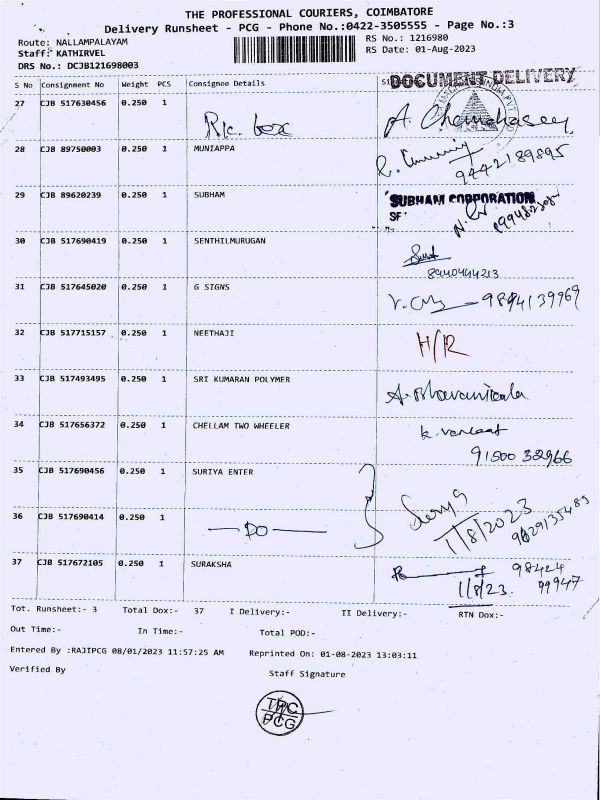 THE PROFESSIONAL COURIERS, COIMBATORE
Delivery Runsheet - PCG - Phone No.:0422-3505555 - Page No.:3
Route: NALLAMPALAYAM RS No.: 1216980
Staff: KATHIRVEL RS Date: 01-Aug-2023
DRS No.: DCJB121698003
S No Consignment No Weight PCS Consignee Details
DOCUMENT DELIVERY
27 CJB 517630456 0.250 1
28 CJB 89750003 0.250 1 MUNIAPPA
9442189895
29 CJB 89620239 0.250 1 SUBHAM SUBHAM CORPORATION
SF
30 CJB 517690419 0.250 1 SENTHILMURUGAN
8940444213
31 CJB 517645020 0.250 1 G SIGNS 9894139969
32 CJB 517715157 0.250 1 NEETHAJI H/R
33 CJB 517493495 0.250 1 SRI KUMARAN POLYMER
34 CJB 517656372 0.250 1 CHELLAM TWO WHEELER
91500 32966
35 CJB 517690456 0.250 1 SURIYA ENTER
36 CJB 517690414 0.250 1 DO 1/8/2023
37 CJB 517672105 0.250 1 SURAKSHA 98424
1/8/23. 99947
Tot. Runsheet:- 3 Total Dox:- 37 I Delivery:- II Delivery:- RTN Dox:-
Out Time:- In Time:- Total POD:-
Entered By :RAJIPCG 08/01/2023 11:57:25 AM Reprinted On: 01-08-2023 13:03:11
Verified By Staff Signature
TPC
PCG